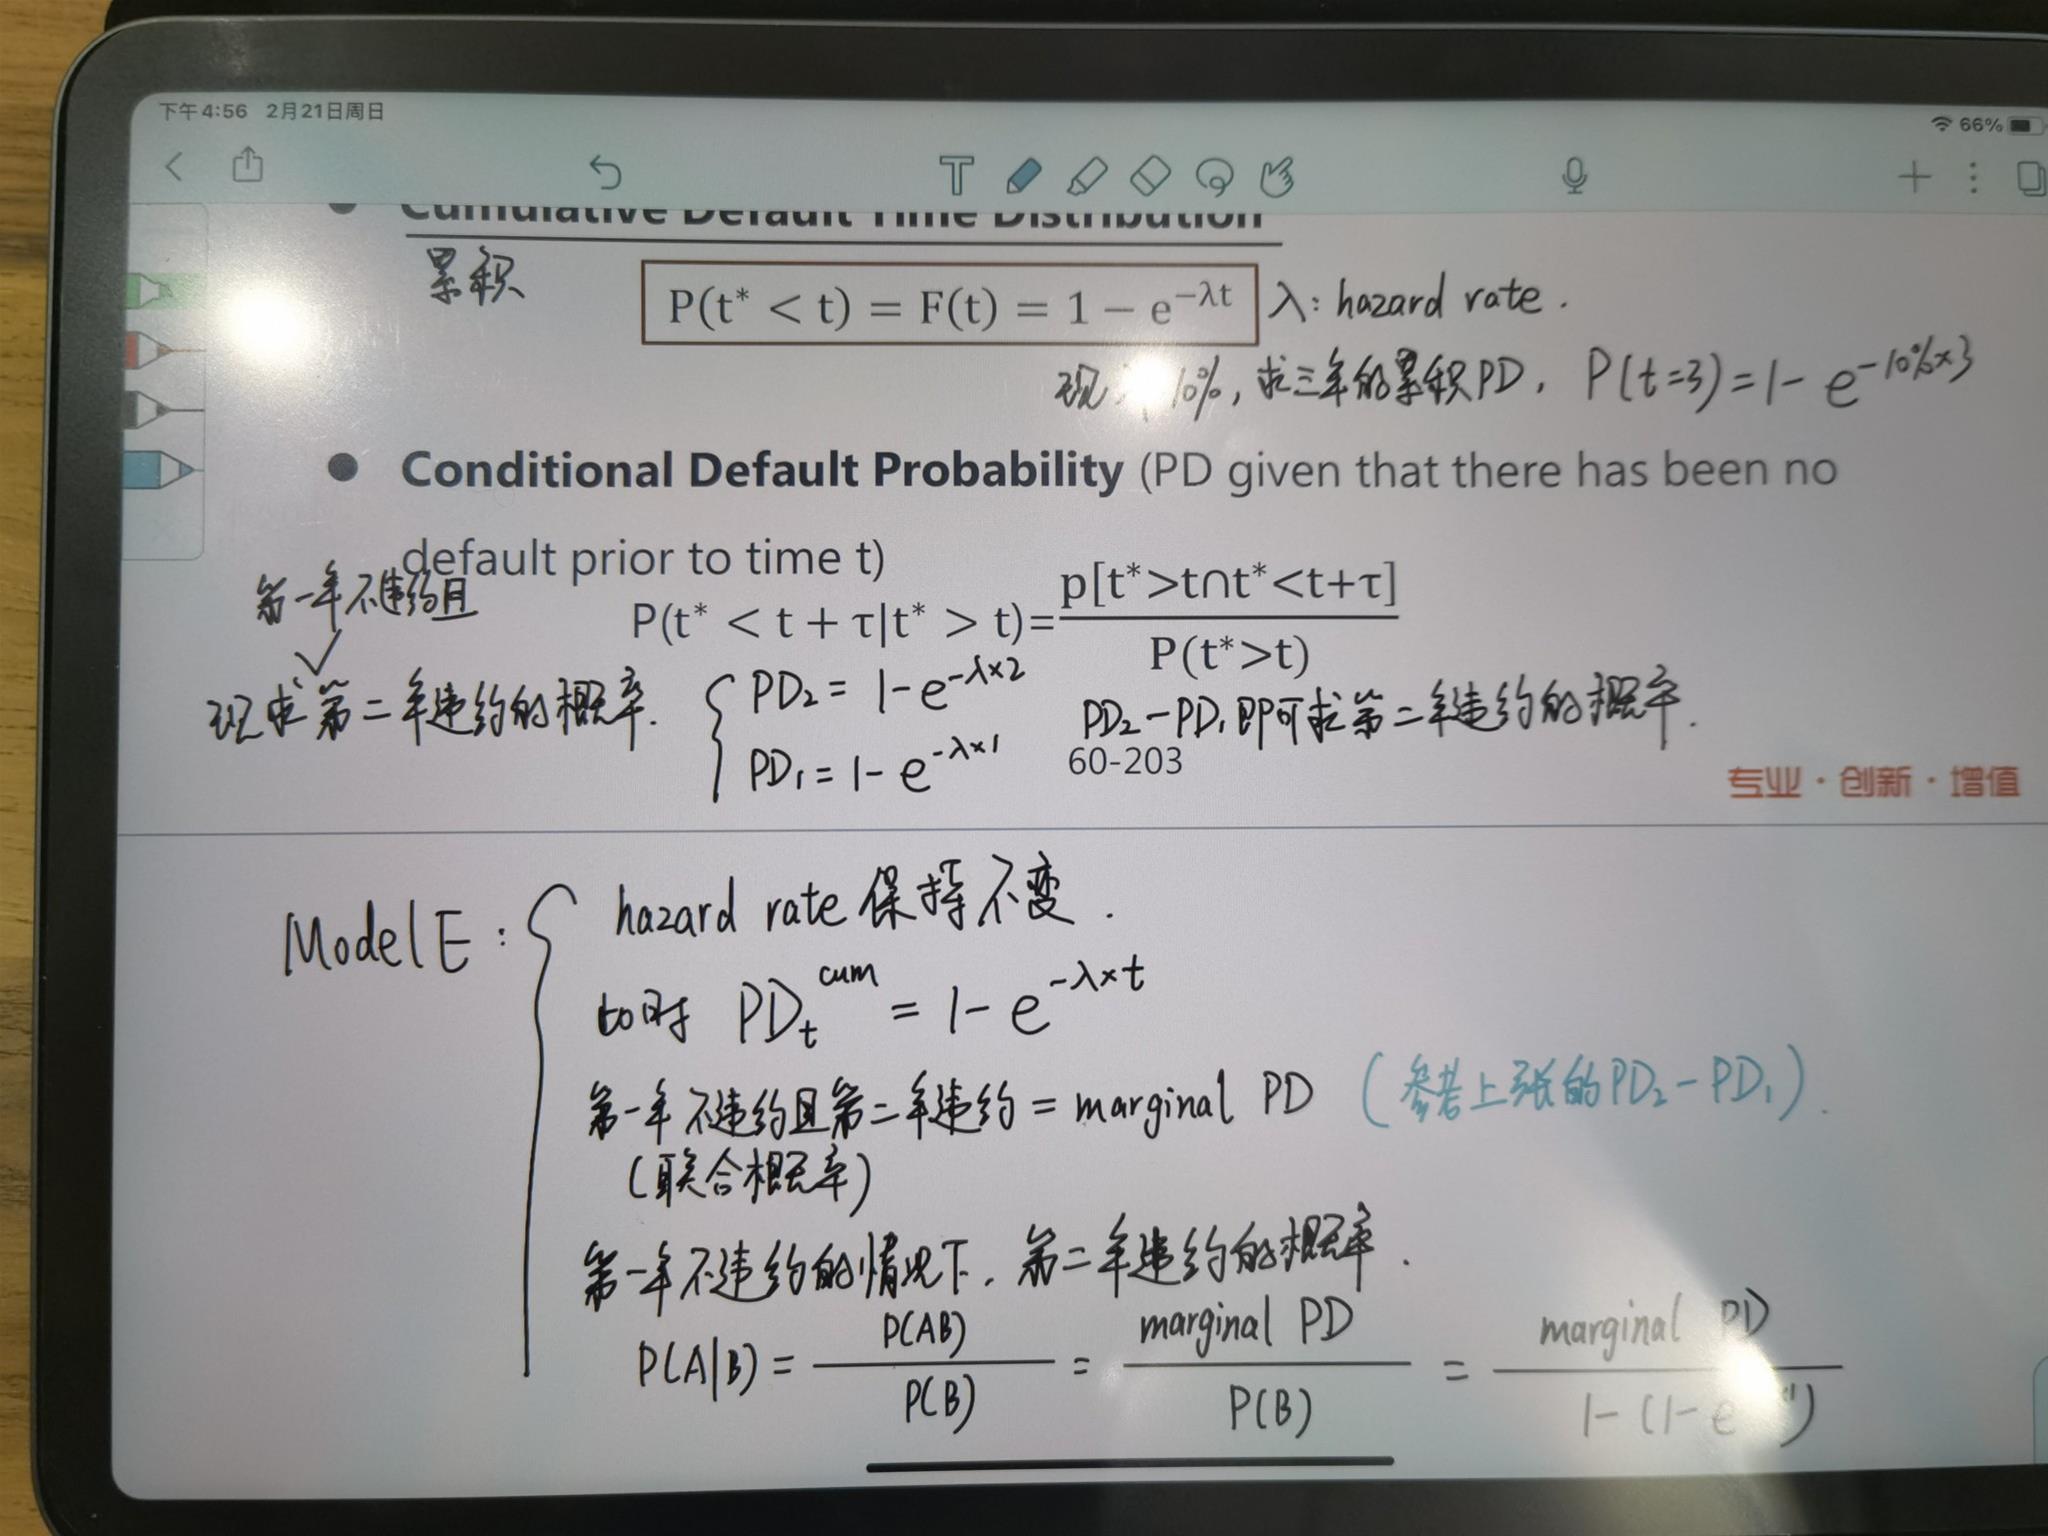 下午4:56 2月21日周日
66%
T
Cumulative Default Time Distribution
累积
P(t* < t) = F(t) = 1 − e^−λt
λ: hazard rate.
现 10%, 求三年的累积PD, P(t=3) = 1 - e^-10%×3
● Conditional Default Probability (PD given that there has been no
default prior to time t)
第一年不违约且
P(t* < t + τ|t* > t)= p[t*>t∩t*<t+τ] / P(t*>t)
现求第二年违约的概率.
PD₂ = 1 - e^-λ×2
PD₁ = 1 - e^-λ×1
PD₂ - PD₁ 即可求第二年违约的概率.
60-203
专业·创新·增值
Model E: hazard rate 保持不变.
t0时 PD_t^cum = 1 - e^-λ×t
第一年不违约且第二年违约 = marginal PD (参考上张的PD₂ - PD₁).
(联合概率)
第一年不违约的情况下, 第二年违约的概率.
P(A|B) = P(AB) / P(B) = marginal PD / P(B) = marginal PD / 1 - (1 - e )